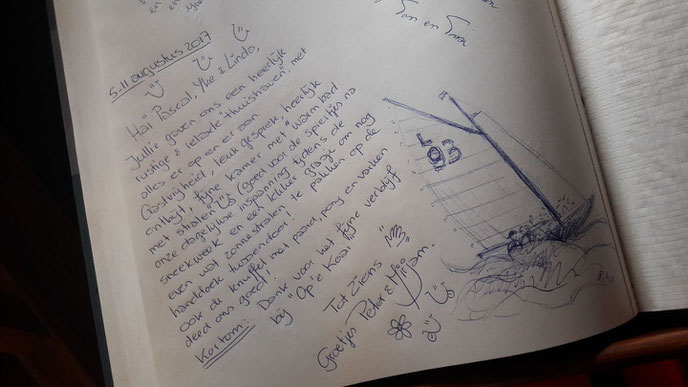 en
5-11 augustus 2017
Hai Pascal, Yke & Lindo,
Jullie gaven ons een heerlijk
rustige & relaxte "thuishaven", met
alles er op en er aan
Gastvrijheid, leuk gesprek, heerlijk
ontbijt, fijne kamer met "warm bad
met stralen" (goed voor de spiertjes na
onze dagelijkse inspanning tijdens de
sneekweek en een lekker grasje om nog
even wat zonnestralen te pakken op de
handdoek tussendoor!
ook de knuffel met paard, pony en varken
deed ons goed!
Kortom: Dank voor het fijne verblijf
bij "Op'e Kooi"
Tot Ziens
Groetjes Peter & Mirjam.
L
93